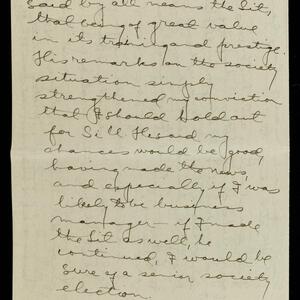 said by all means the Lit,
that being of great value
in its training and prestige.
His remarks on the society
situation simply
strengthened my conviction
that I should hold out
for S. & K. He said my
chances would be good,
having made the news,
and especially if I was
likely to be business
manager – if I made
the Lit as well, he
continued, I would be
sure of a senior society
election.